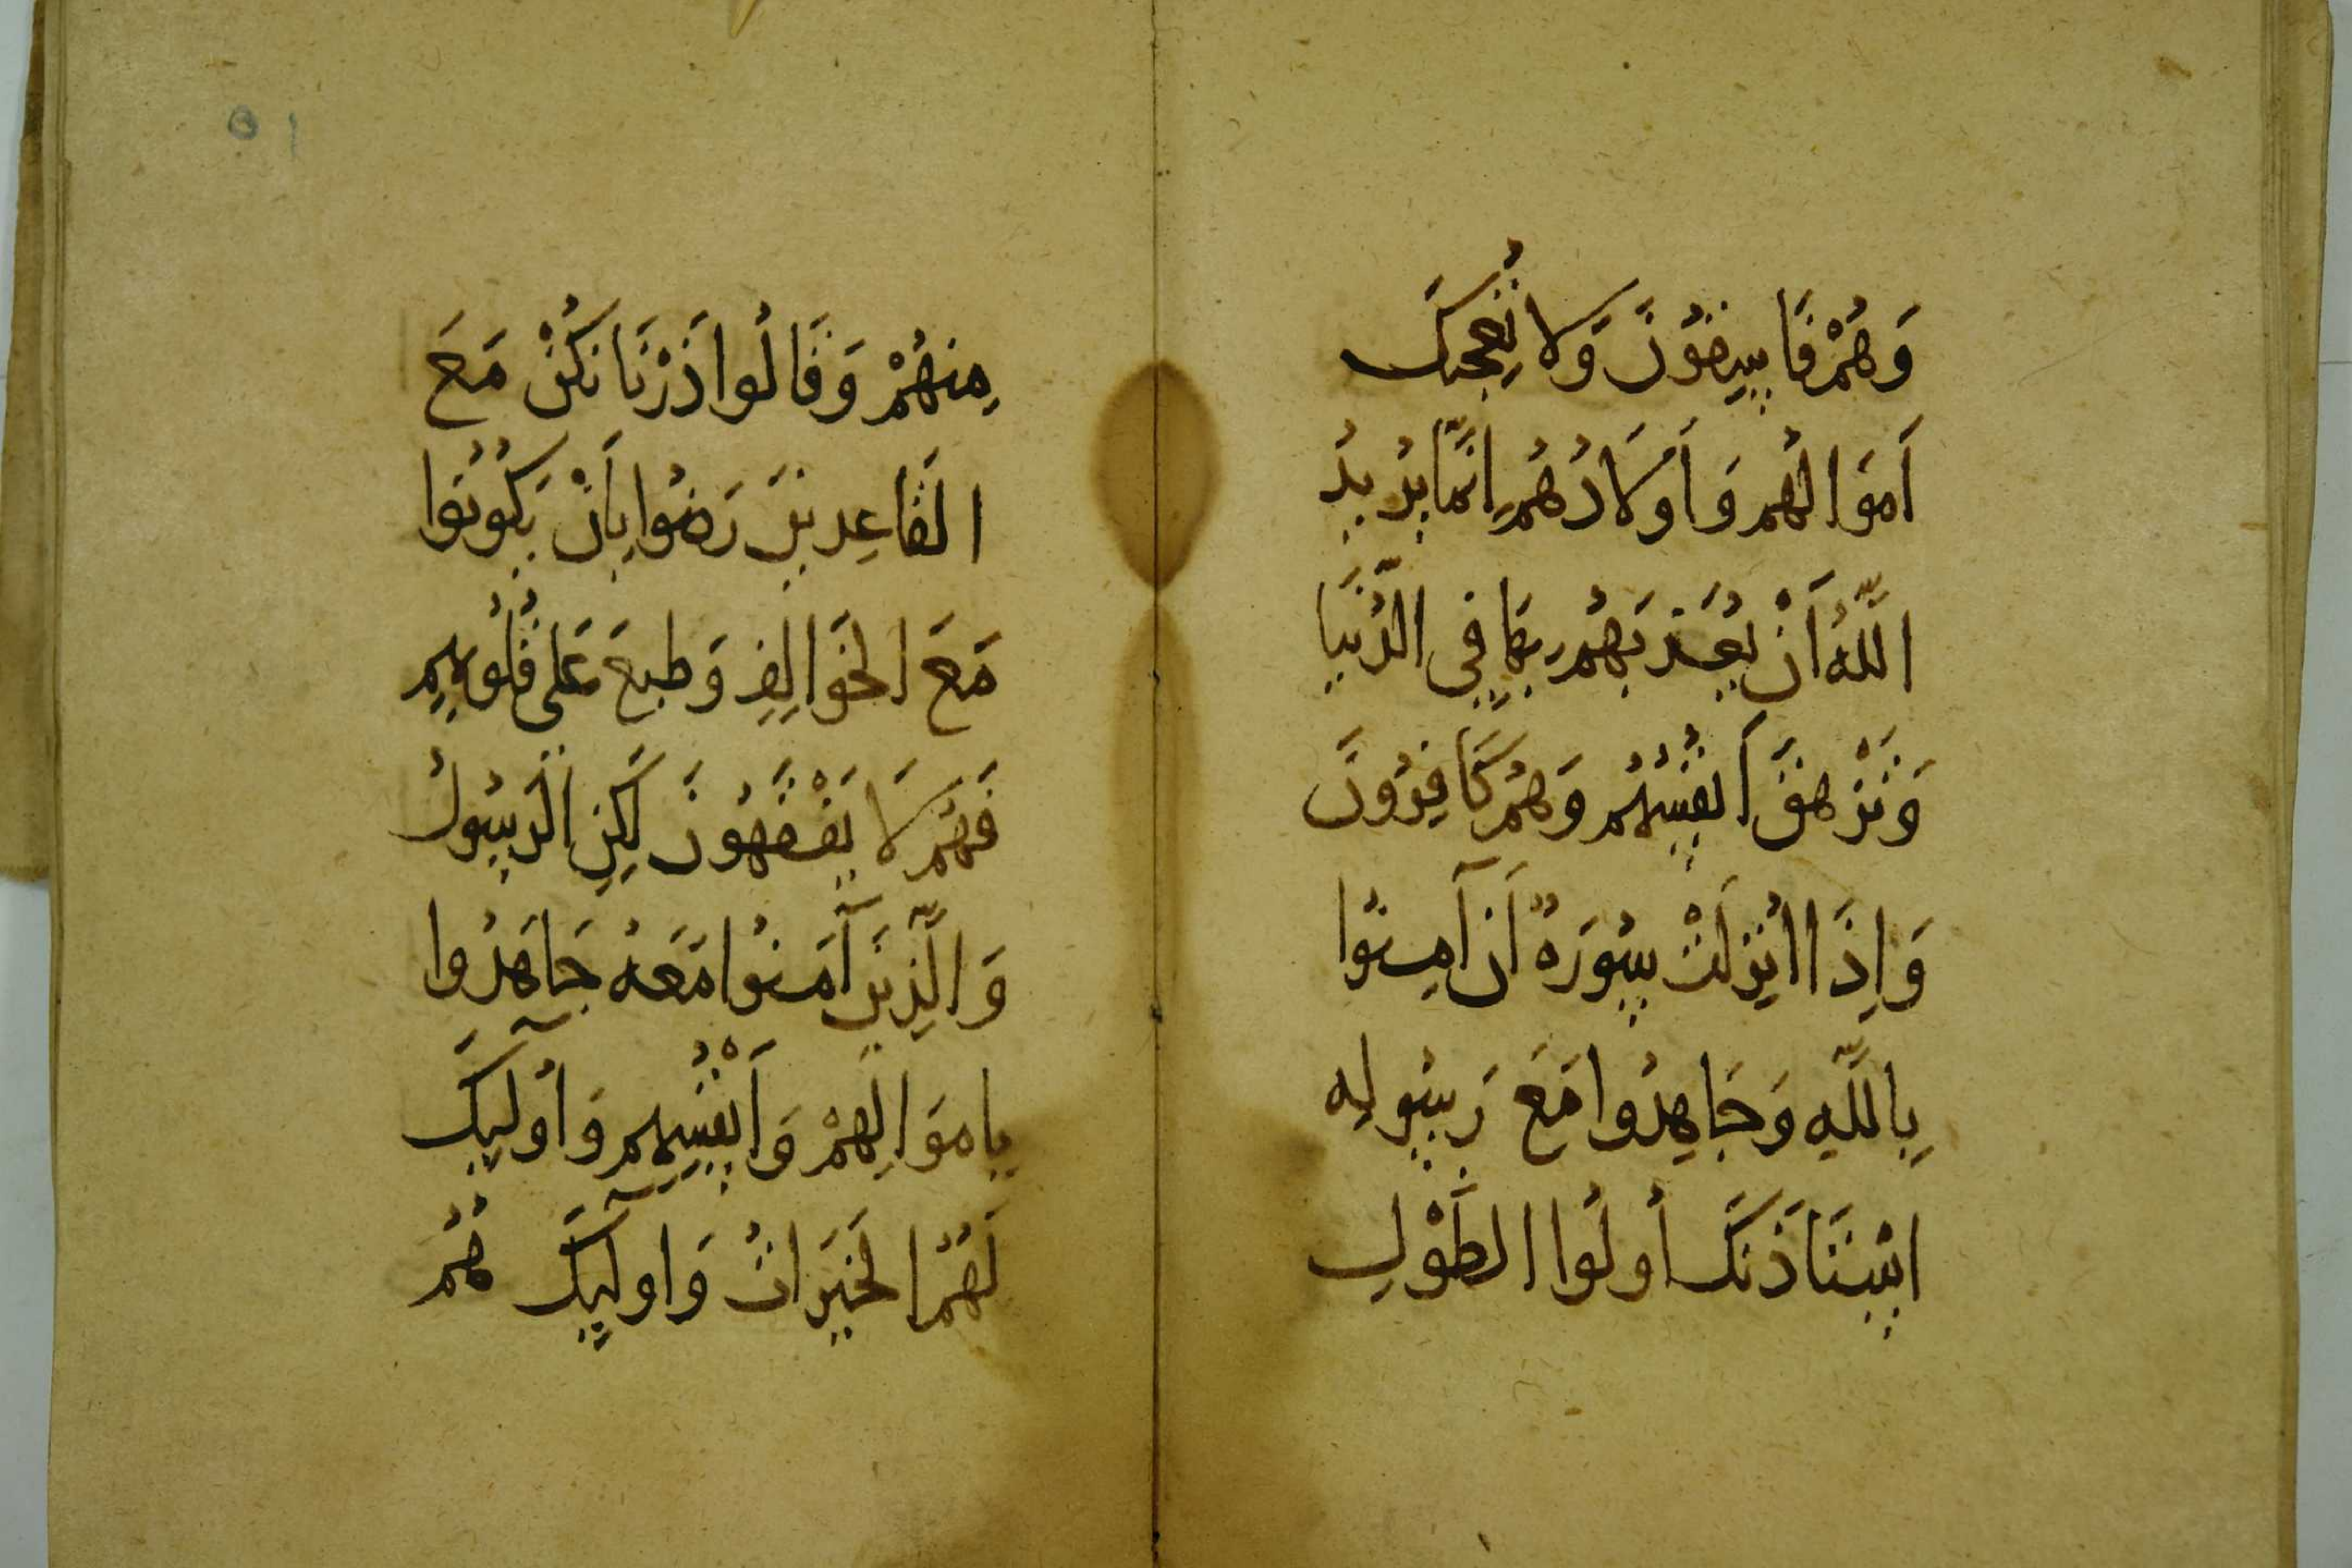 وَهُمْ فَاسِقُونَ وَلَا تُعْجِبْكَ
أَمْوَالُهُم وَأَوْلَادُهُمْ إِنَّمَا يُرِيدُ
اللَّهُ أَنْ يُعَذِّبَهُمْ بِهَا فِي الدُّنْيَا
وَتَزْهَقَ أَنفُسُهُمْ وَهُمْ كَافِرُونَ
وَإِذَا أُنْزِلَتْ سُورَةٌ أَنْ آمِنُوا
بِاللَّهِ وَجَاهِدُوا مَعَ رَسُولِهِ
اسْتَأْذَنَكَ أُولُوا الطَّوْلِ
مِنْهُمْ وَقَالُوا ذَرْنَا نَكُنْ مَعَ
الْقَاعِدِينَ رَضُوا بِأَنْ يَكُونُوا
مَعَ الْخَوَالِفِ وَطُبِعَ عَلَى قُلُوبِهِمْ
فَهُمْ لَا يَفْقَهُونَ لَكِنِ الرَّسُولُ
وَالَّذِينَ آمَنُوا مَعَهُ جَاهَدُوا
بِأَمْوَالِهِمْ وَأَنْفُسِهِمْ وَأُولَئِكَ
لَهُمُ الْخَيْرَاتُ وَأُولَئِكَ هُمُ